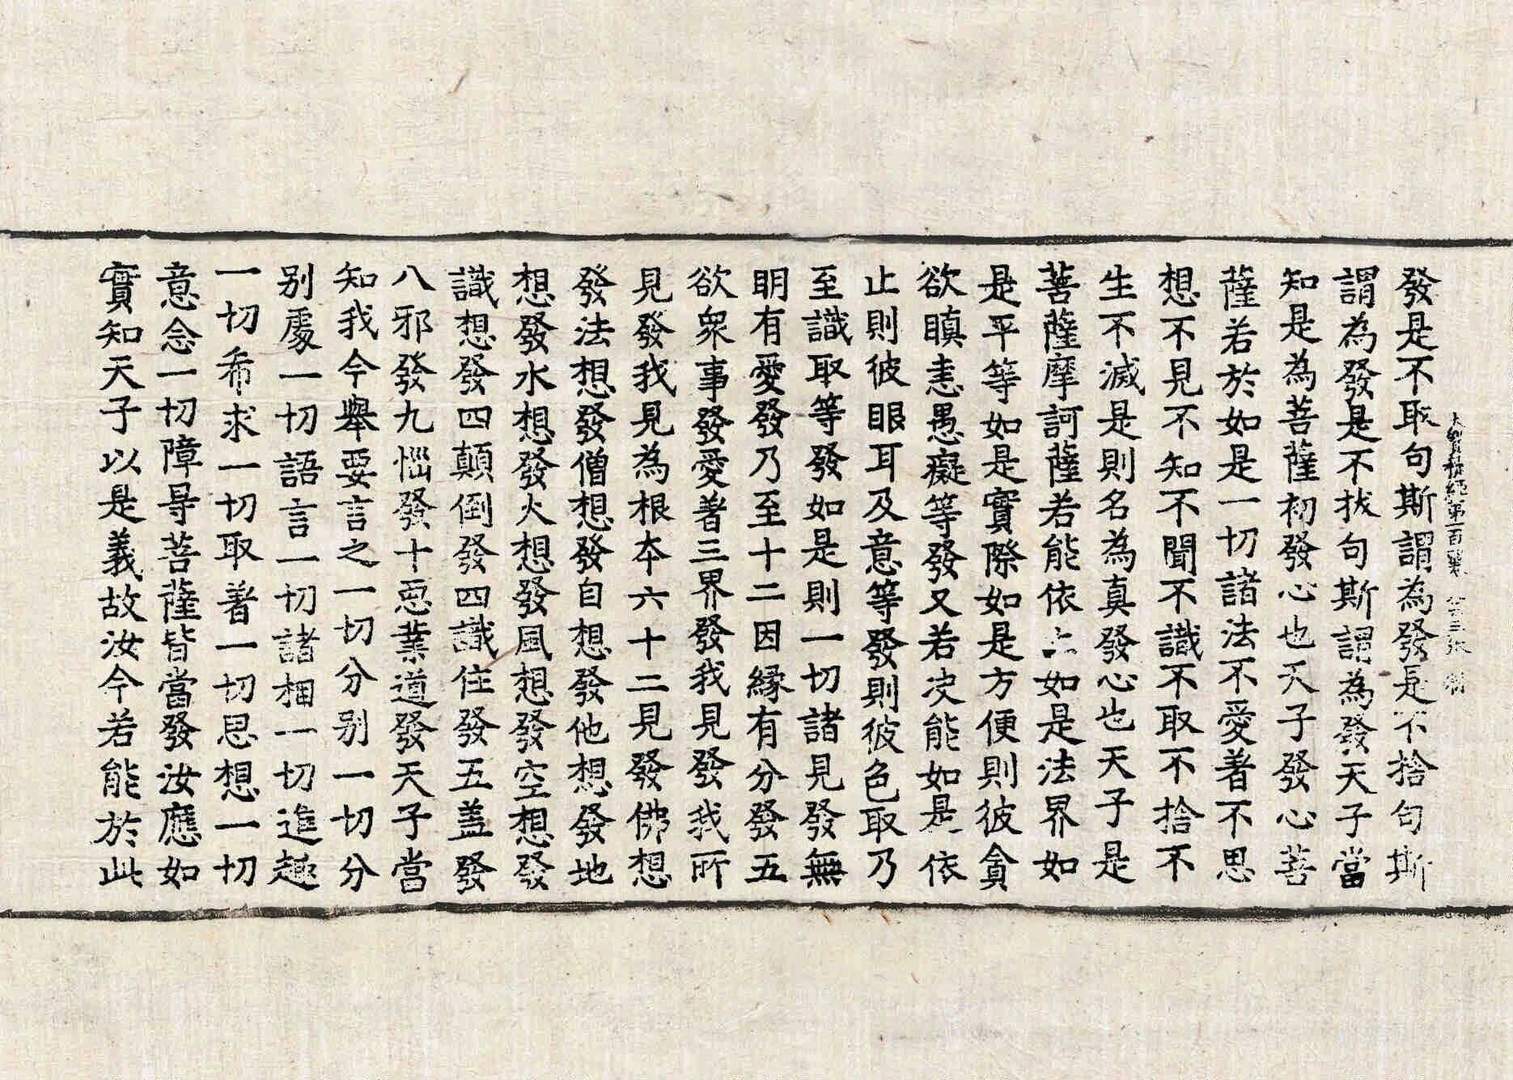 發是不取句斯謂為發是不捨句斯
謂為發是不拔句斯謂為發天子當
知是為菩薩初發心也天子發心菩
薩若於如是一切諸法不愛著不思
想不見不知不聞不識不取不捨不
生不滅是則名為真發心也天子是
菩薩摩訶薩若能依止如是法界如
是平等如是實際如是方便則彼貪
欲瞋恚愚癡等發又若决能如是依
止則彼眼耳及意等發則彼色取乃
至識取等發如是則一切諸見發無
明有愛發乃至十二因緣有分發五
欲衆事發愛著三界發我見發我所
見發我見為根本六十二見發佛想
發法想發僧想發自想發他想發地
想發水想發火想發風想發空想發
識想發四顛倒發四識住發五盖發
八邪發九惱發十惡業道發天子當
知我今舉要言之一切分别一切分
别處一切語言一切諸相一切進趣
一切希求一切取著一切思想一切
意念一切障㝵菩薩皆當發汝應如
實知天子以是義故汝今若能於此